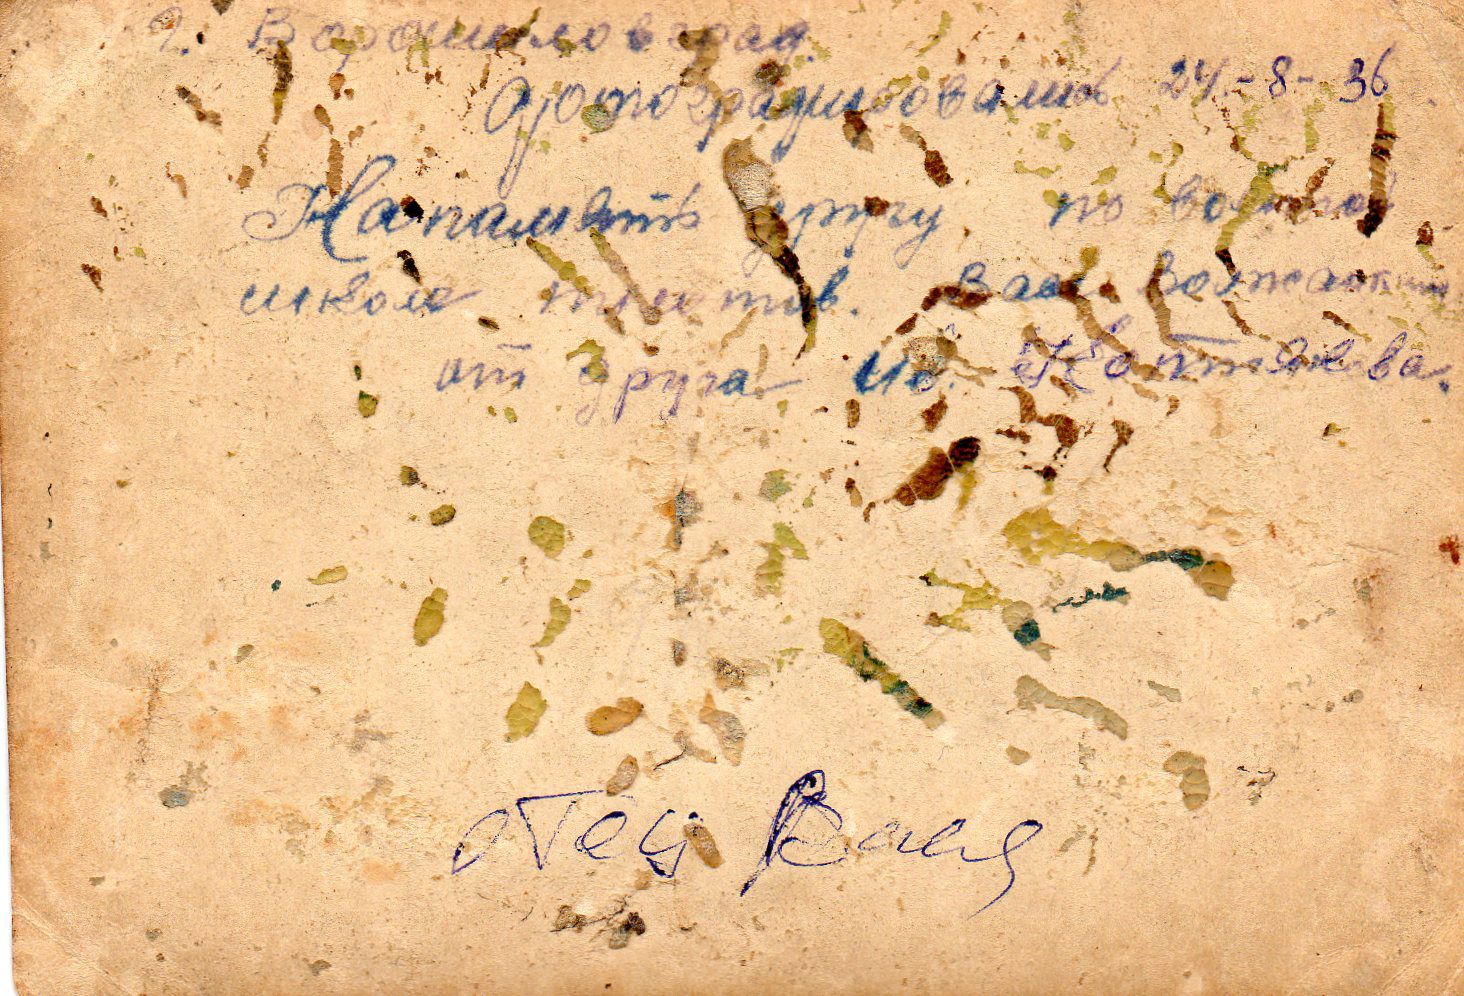 г. Ворошиловград.
Фотографировались 24.-8-36.
На память другу по военной
школе пилотов. Васи
от друга Ив.
отец Вася